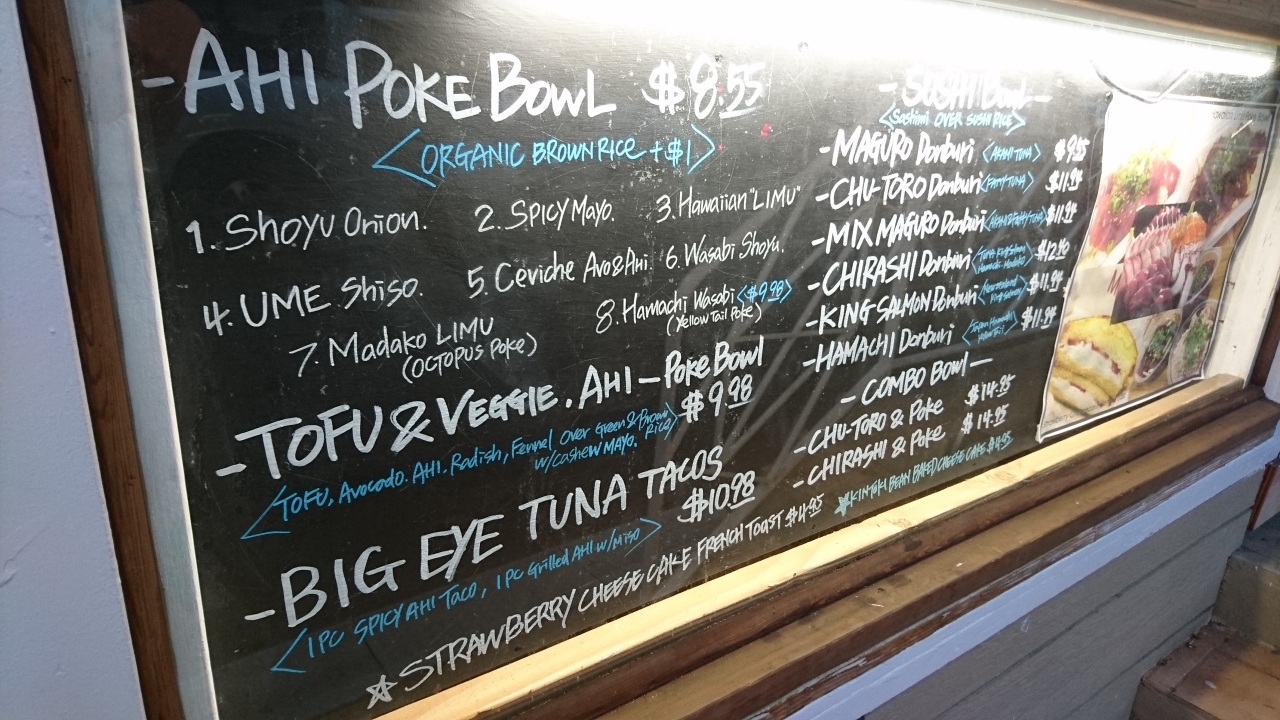 -AHI POKE BOWL $8.55
<ORGANIC BROWN RICE +$1>
1. Shoyu Onion. 2. SPICY MAYO. 3. Hawaiian "LIMU"
4. UME Shiso. 5. Ceviche Avo&Ahi 6. Wasabi Shoyu.
7. Madako LIMU 8. Hamachi Wasabi <$9.98>
(OCTOPUS POKE) (Yellow Tail Poke)
-TOFU & VEGGIE. AHI-Poke Bowl
$9.98
<TOFU, Avocado. AHI. Radish, Fennel Over Green & Brown Rice
w/cashew MAYO.>
-BIG EYE TUNA TACOS
$10.98
<1PC SPICY AHI TACO, 1PC Grilled AHI w/Miso>
☆STRAWBERRY CHEESE CAKE FRENCH TOAST $4.95
-SUSHI Bowl-
<Sashimi OVER SUSHI RICE>
-MAGURO Donburi <AKAMI TUNA> $9.55
-CHU-TORO Donburi <FATTY TUNA> $11.94
-MIX MAGURO Donburi $11.94
-CHIRASHI Donburi
-KING SALMON Donburi $11.94
-HAMACHI Donburi $11.94
-COMBO BOWL-
-CHU-TORO & Poke $14.95
-CHIRASHI & Poke $14.95
☆KINTOKI BEAN BAKED CHEESE CAKE $4.95